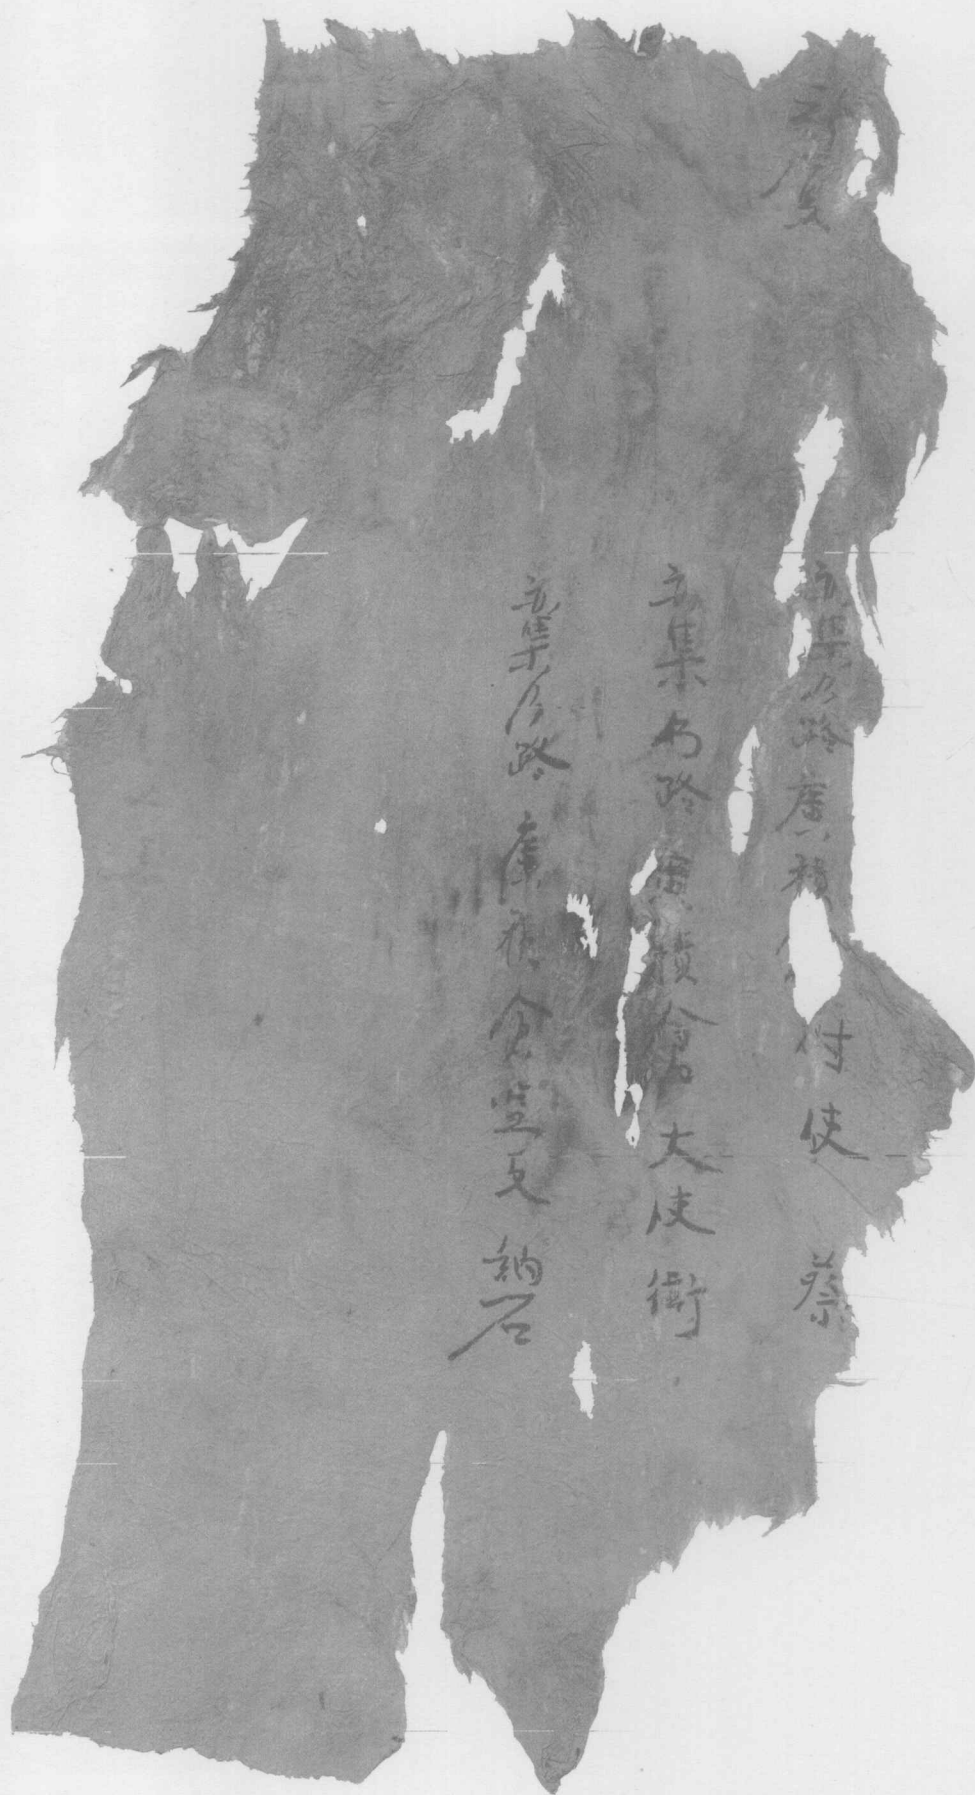 亦集乃路廣積倉付使 蔡
亦集乃路廣積倉大使 衛
亦集乃路廣積倉監支納 石